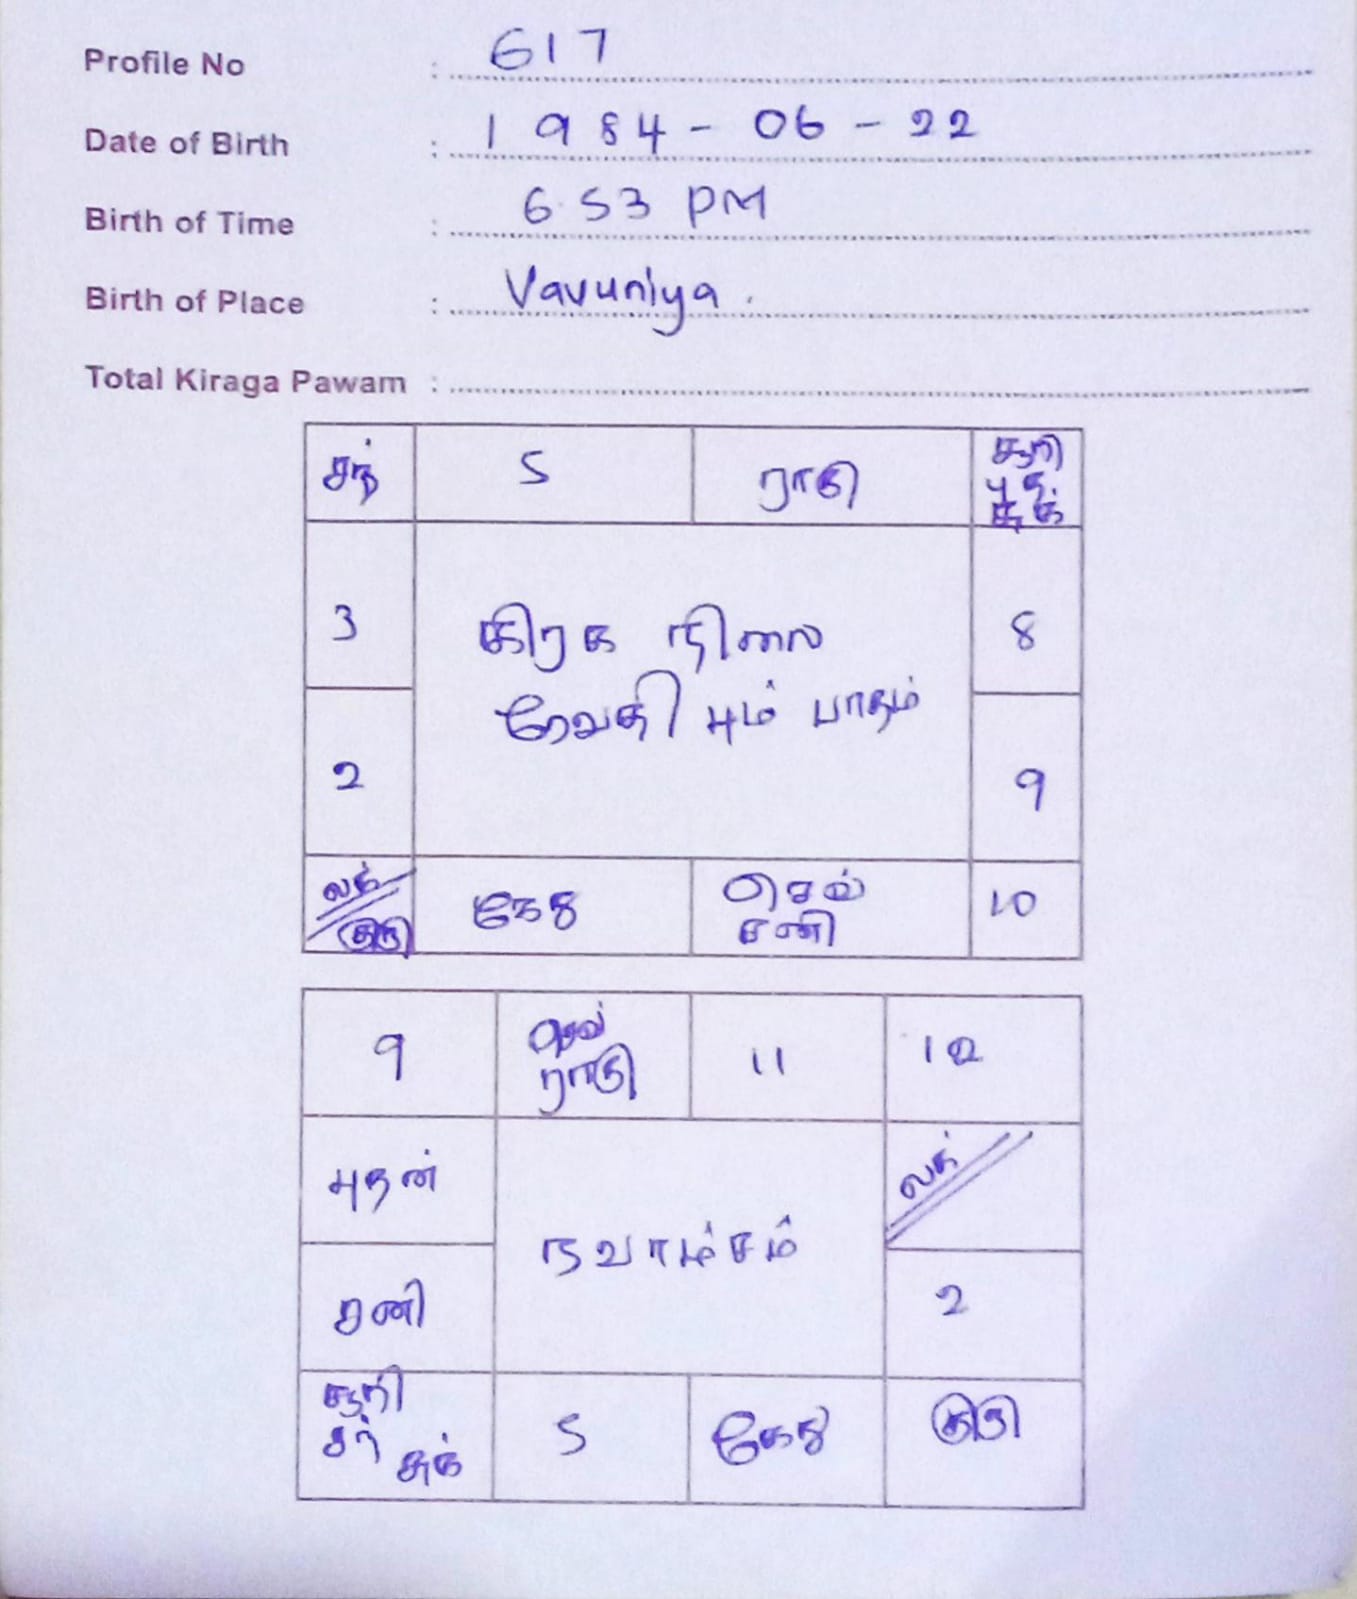 Profile No : 617
Date of Birth : 1984-06-22
Birth of Time : 6.53 PM
Birth of Place : Vavuniya.
Total Kiraga Pawam :
சந் 5 ராகு சூரி
புத.
சுக்
3 8
கிரக நிலை
ரேவதி 4ம் பாதம்
2 9
லக் கேது செவ் 10
குரு சனி
9 செவ் 11 12
ராகு
புதன் லக்
நவாம்சம்
சனி 2
சூரி 5 கேது குரு
சந்
சுக்